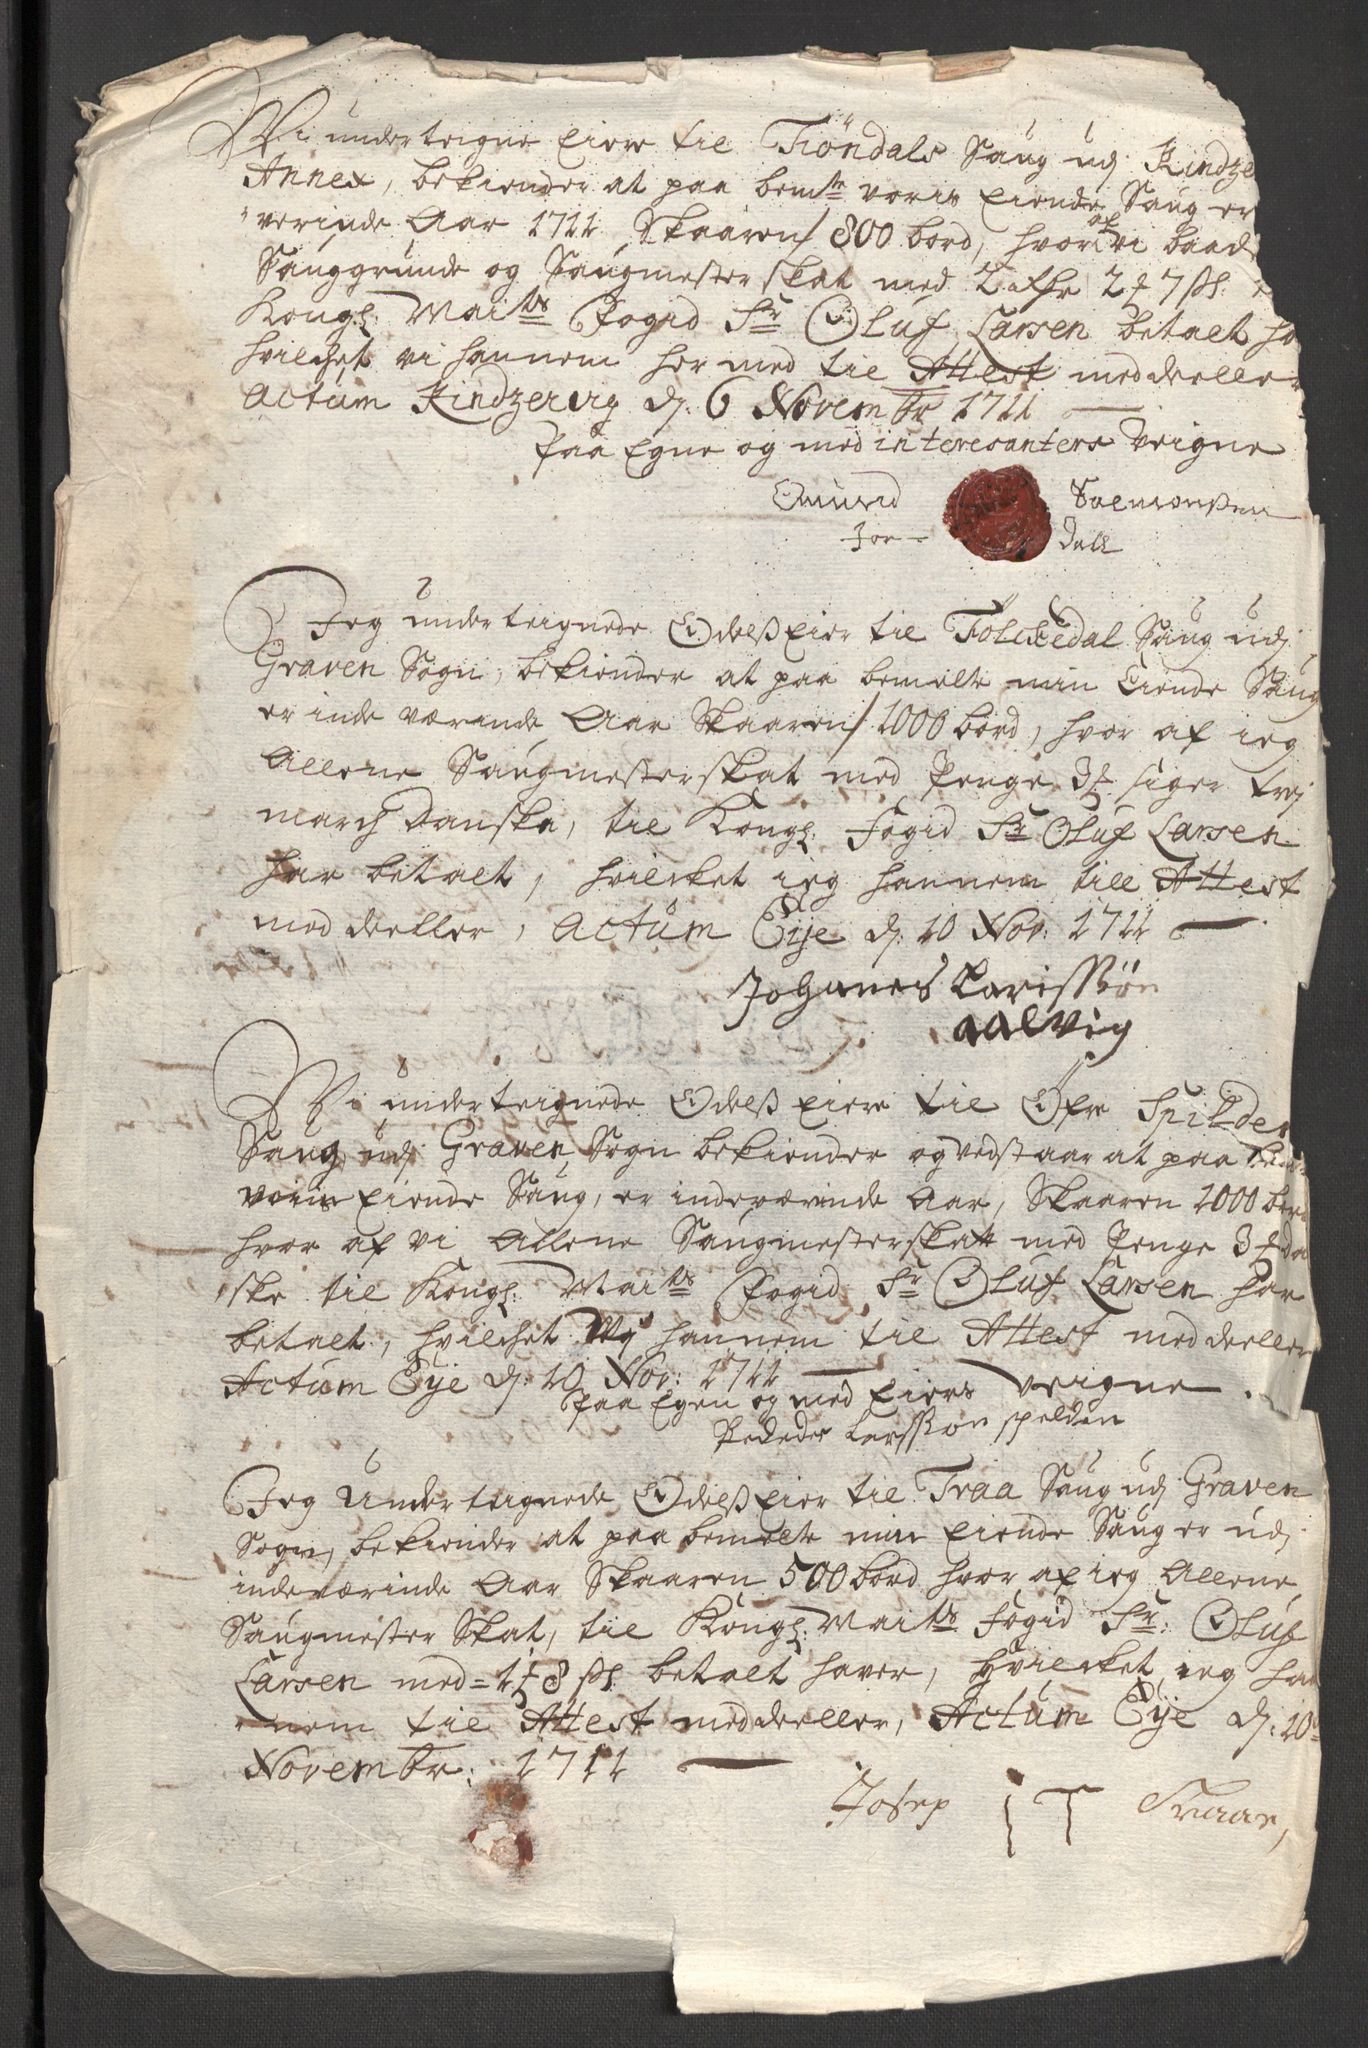 Wi under teigne Eiere til Tiöndals Saug udj Kindze
Annex, bekiender at paa bemte voris Eiende Saug er
verinde Aar 1711 Skaaren / 800 bord, hvoraf vi baade
Sauggrunde og Saugmester skat med 2 rdr 2 # 7 ßl
Kongl: Maits Fogid Sr Oluf Larsen betalt ha
hvilchet vi hannem her med til Attest meddeeller
Actum Kindzervig dj: 6 Novembr 1711
Paa Egne og med interesanters Veigne
Omund Salmonßen
Joe Dall
Jeg under teignede Odelß Eier til Folckedal Saug udj
Graven Sogn, bekiender at paa bemelte min Eiende Saug
er inde værinde Aar Skaaren / 1000 bord, hvor af ieg
Allene Saugmester skat med Penge 3 # siger trej
march Danske, til Kongl: Fogid Sr Oluf Larsen
har betalt, hvilcket ieg hannem till Attest
med deeller, Actum Eije dj: 10 Nov: 1711
Johanes Larissøn
aalvig
Wi under teignede Odelß Eiere til Øfre Spilden
Saug udj Graven Sogn bekiender og vedstaar at paa bem
voris Eiende Saug, er indeværinde Aar, Skaaren 1000 bord
hvor af vi Allene Saugmesterskatt med Penge 3 # da
ske til Kongl: Maits Fogid Sr Oluf Larsen har
betalt, hvilchet Wij hannem til Attest med deeller
Actum Eije dj: 10 Nov: 1711
Paa Egen og med Eiers Veigne.
Pededer Larssøn spelden
Jeg Under teignede Odelß Eier til Traa Saug udj Graven
Sogn, bekiender at paa bemelte min Eiende Saug er udj
indeværinde Aar Skaaren 500 bord hvor af ieg Allene
Saugmester Skat, til Kongl: Maits Fogid Sr: Oluf
Larsen med = 1 # 8 ßl betalt haver, Hvilcket ieg han
nem til Attest meddeeller, Actum Eije dj: 10
Novembr: 1711
Josep I T Traae,